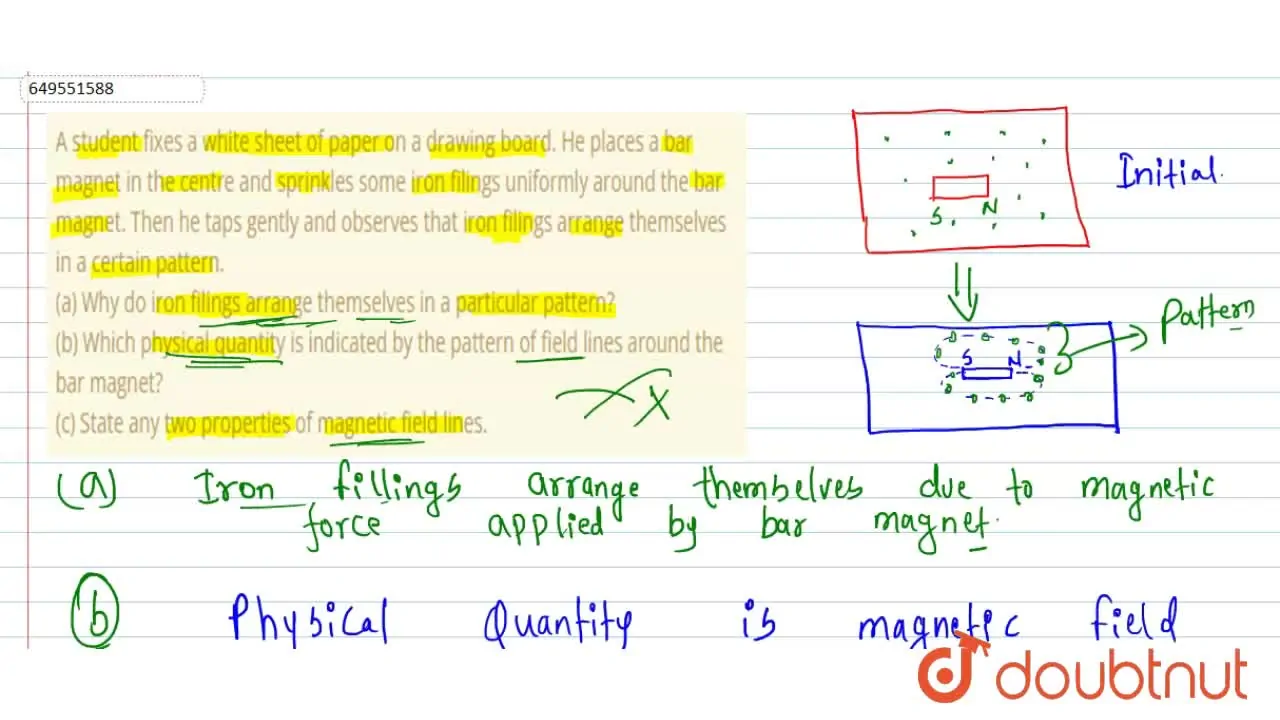 649551588
A student fixes a white sheet of paper on a drawing board. He places a bar
magnet in the centre and sprinkles some iron filings uniformly around the bar
magnet. Then he taps gently and observes that iron filings arrange themselves
in a certain pattern.
(a) Why do iron filings arrange themselves in a particular pattern?
(b) Which physical quantity is indicated by the pattern of field lines around the
bar magnet?
(c) State any two properties of magnetic field lines.
S N
Initial.
Pattern
S N
X
(a) Iron fillings arrange themselves due to magnetic
force applied by bar magnet.
b Physical Quantity is magnetic field
doubtnut